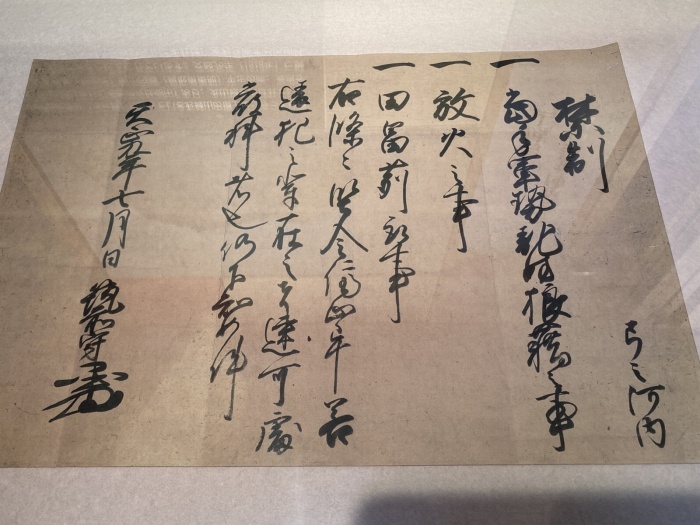 禁制
弓之河内
一 当手軍勢乱妨狼藉之事
一 放火之事
一 田畠苅取事
右條々堅令停止畢若
違犯之輩在之者速可處
厳科者也仍下知如件
天正九年七月日 筑前守